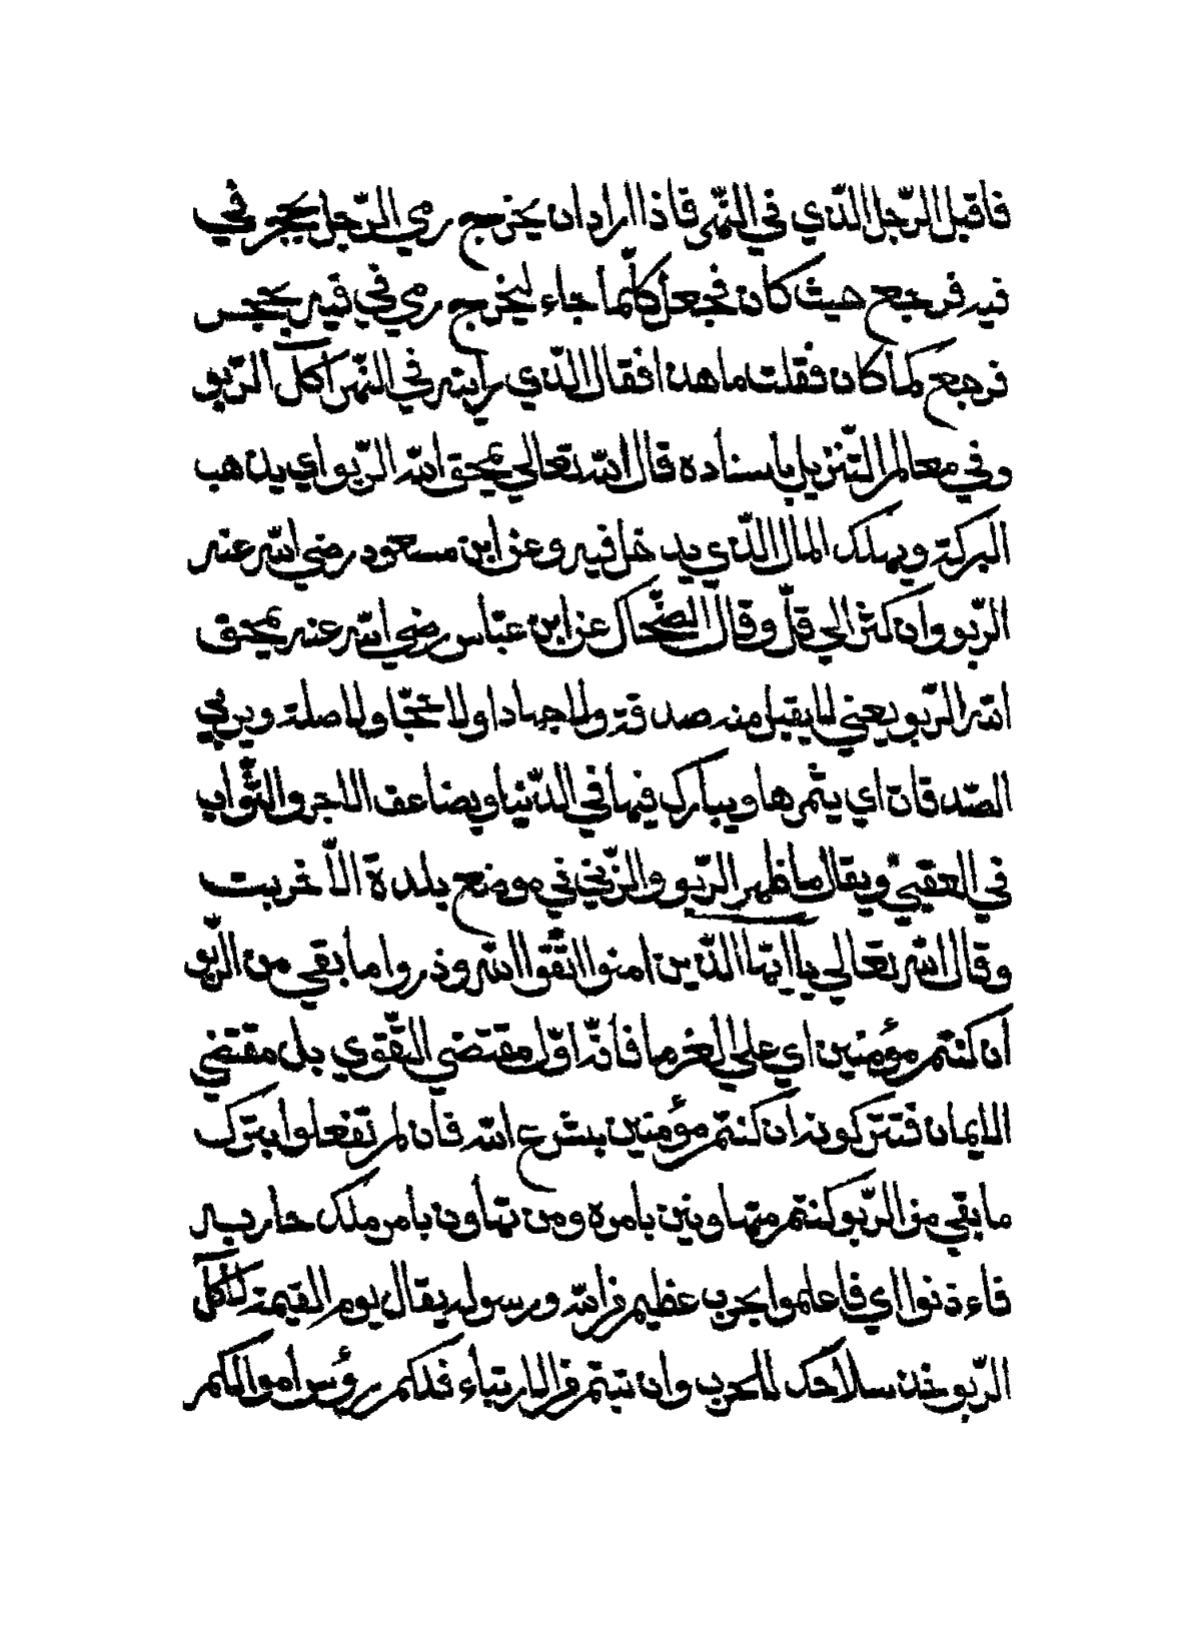 فاقبل الرّجل الّذي في النّهر فاذا اراد ان يخرج رمي الرّجل بحجر في
فيه فرجع حيث كان فجعل كلّما جاء ليخرج رمي في فيه بحجر
فرجع كما كان فقلت ما هذا فقال الّذي رايته في النّهر آكل الرّبو
وفي معالم التّنزيل باسناده قال الله تعالي يمحق الله الرّبو اي يذهب
البركة ويهلك المال الّذي يدخل فيه وعن ابن مسعود رضي الله عنه
الرّبو وان كثر الي قلّ وقال الضّحاك عن ابن عبّاس رضي الله عنه يمحق
الله الرّبو يعني لا يقبل منه صدقة ولا جهادا ولا حجّا ولا صلة ويربي
الصّدقات اي يثمرها ويبارك فيها في الدّنيا ويضاعف الاجر والثّواب
في العقبي ويقال ما ظهر الرّبو والزّني في موضع بلدة الّا خربت
وقال الله تعالي يا ايّها الّذين امنوا اتّقوا الله وذروا ما بقي من الرّبو
ان كنتم مؤمنين اي علي الغرما فانّه اوّل مقتضي التّقوي بل مقتضي
الايمان فتتركونه ان كنتم مؤمنين بشرع الله فان لم تفعلوا بترك
ما بقي من الرّبو كنتم متهاونين بامره ومن تهاون بامر ملك حاربه
فاءذنوا اي فاعلموا بحرب عظيم من الله ورسوله يقال يوم القيمة لآكل
الرّبو خذ سلاحك للحرب وان تبتم من الارتباء فلكم رؤس اموالكم